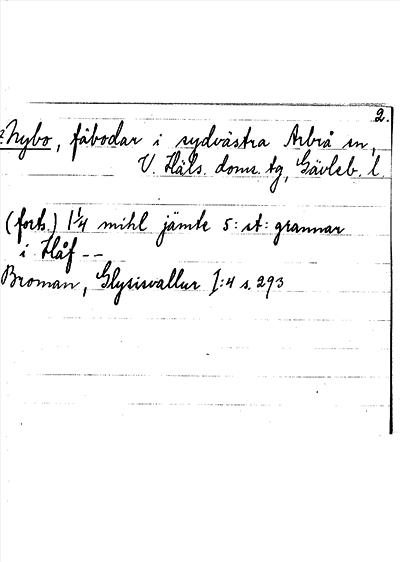 2.
Nybo, fäbodar i sydvästra Arbrå sn,
V. Häls. doms. tg, Gävleb. l.
(forts.) 1 1/4 mihl jämte 5: st: grannar
i Håf --
Broman, Glysisvallur I:4 s. 293